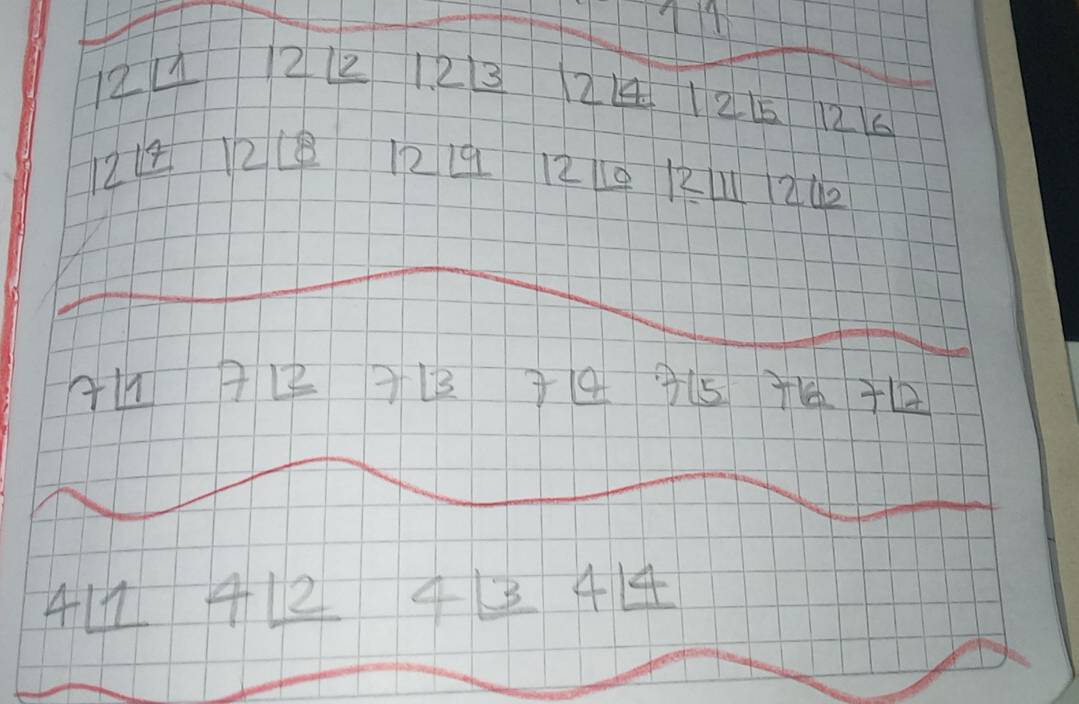 12⌊1 12⌊2 12⌊3 12⌊4 12⌊5 12⌊6
12⌊7 12⌊8 12⌊9 12⌊10 12⌊11 12⌊12
7⌊1 7⌊2 7⌊3 7⌊4 7⌊5 7⌊6 7⌊7
4⌊1 4⌊2 4⌊3 4⌊4